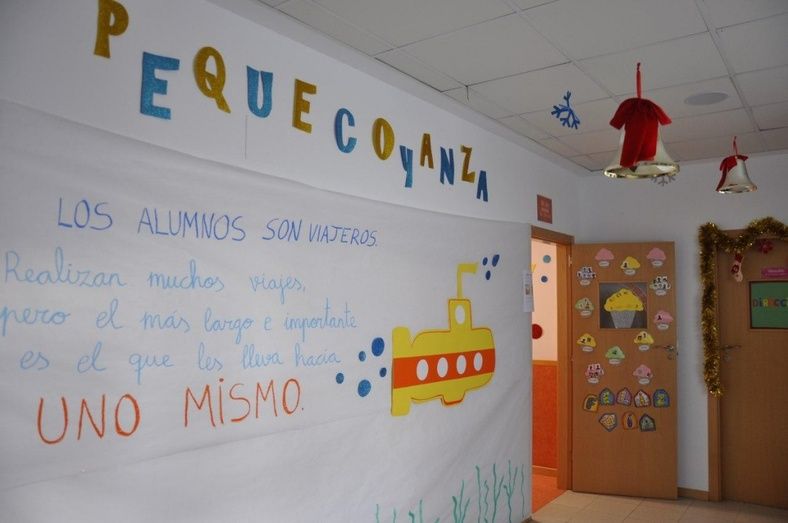 PEQUECOYANZA
LOS ALUMNOS SON VIAJEROS.
Realizan muchos viajes,
pero el más largo e importante
es el que les lleva hacia
UNO MISMO.
DIRECC